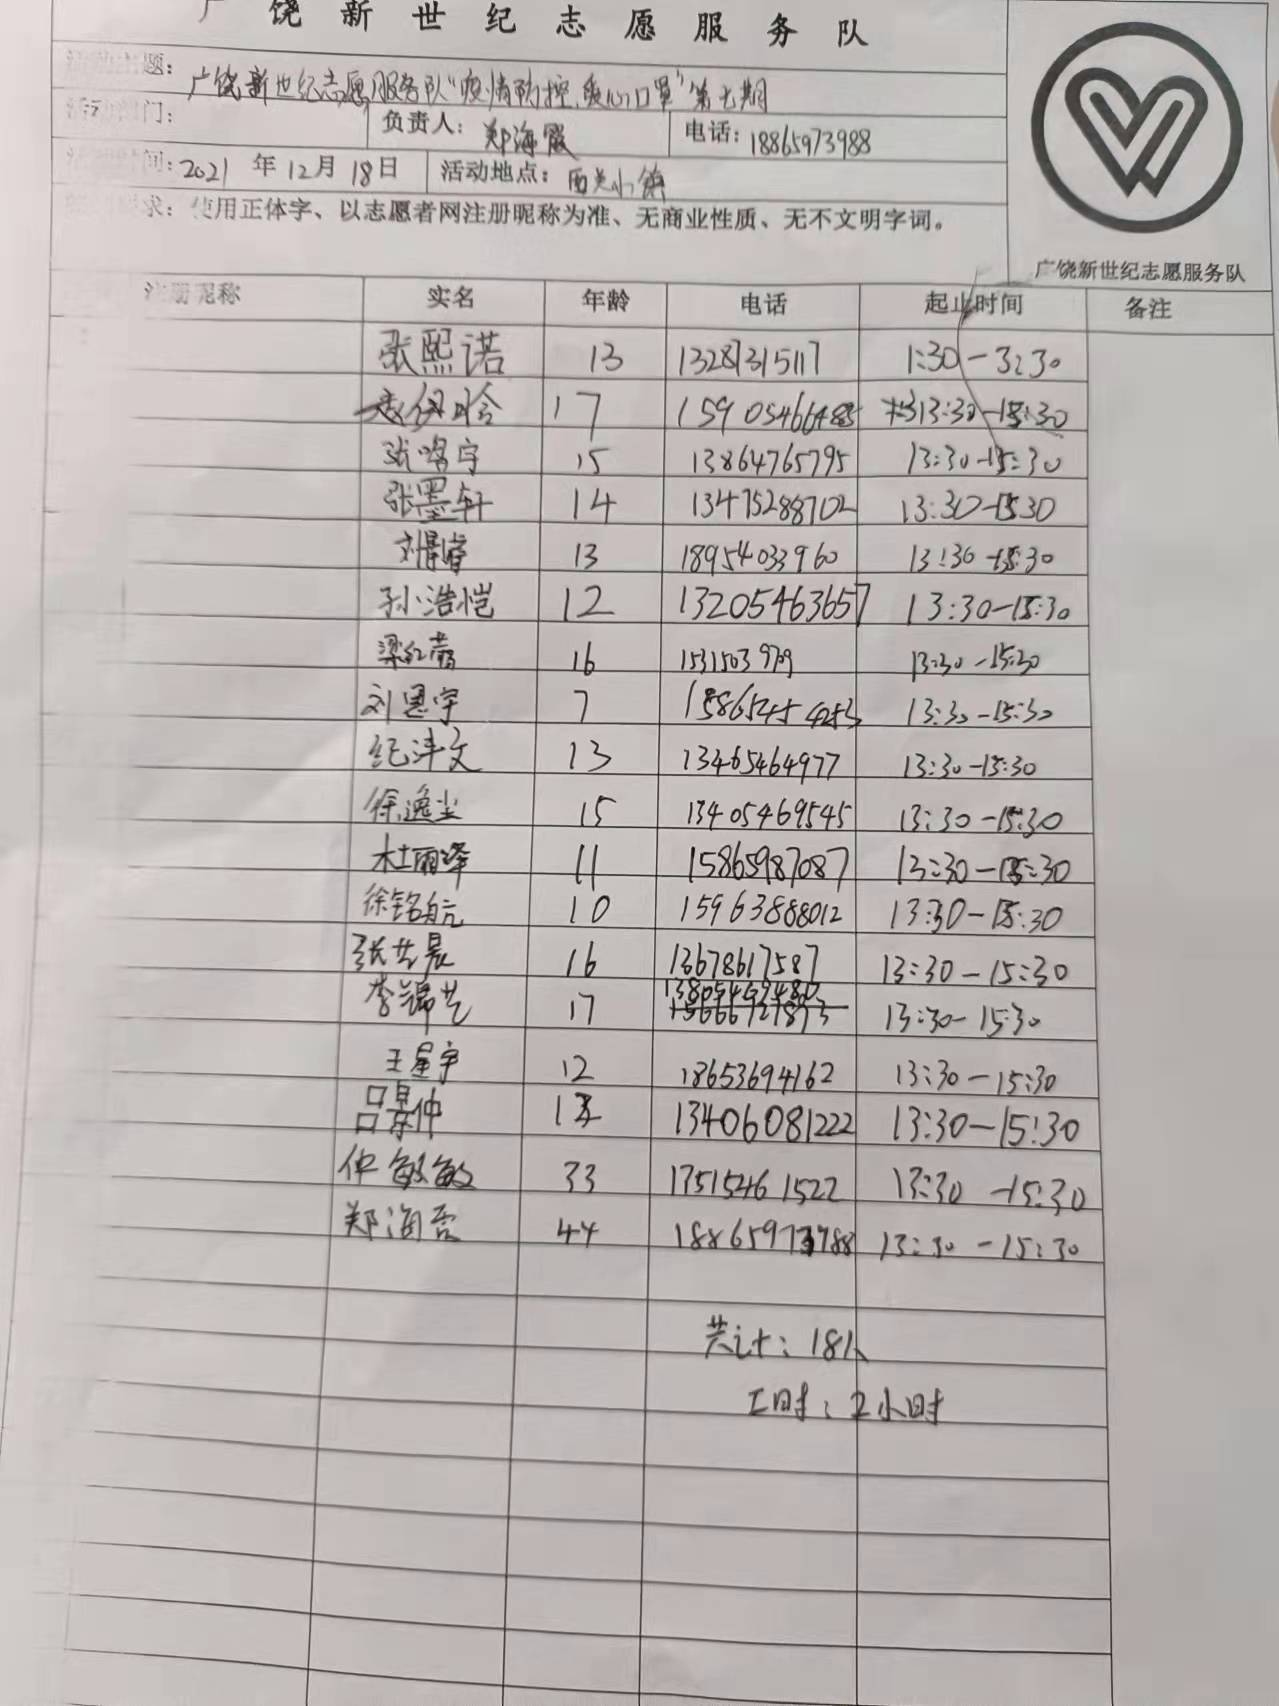 广饶新世纪志愿服务队
题：广饶新世纪志愿服务队“疫情防控,爱心口罩”第七期
活动部门： 负责人：郑海霞 电话：18865973988
间：2021年12月18日 活动地点：西关小镇
求：使用正体字、以志愿者网注册昵称为准、无商业性质、无不文明字词。
广饶新世纪志愿服务队
注册昵称 实名 年龄 电话 起止时间 备注
张熙诺 13 13287315117 1:30-3:30
17 15905466485 13:30-15:30
张鸣宇 15 13864765795 13:30-15:30
张墨轩 14 13475288702 13:30-15:30
刘景睿 13 18954033960 13:30-15:30
孙浩恺 12 13205463657 13:30-15:30
梁红蕾 16 13:30-15:30
刘恩宇 7 15865454253 13:30-15:30
纪沣文 13 13465464977 13:30-15:30
徐逸尘 15 13405469545 13:30-15:30
杜雨泽 11 15865987087 13:30-15:30
徐铭航 10 15963888012 13:30-15:30
张艺晨 16 13678617587 13:30-15:30
李锦艺 17 13:30-15:30
王星宇 12 18653694162 13:30-15:30
吕景仲 13406081222 13:30-15:30
仲敏敏 33 17515461522 13:30-15:30
郑海霞 44 18865973988 13:30-15:30
共计：18人
工时：2小时